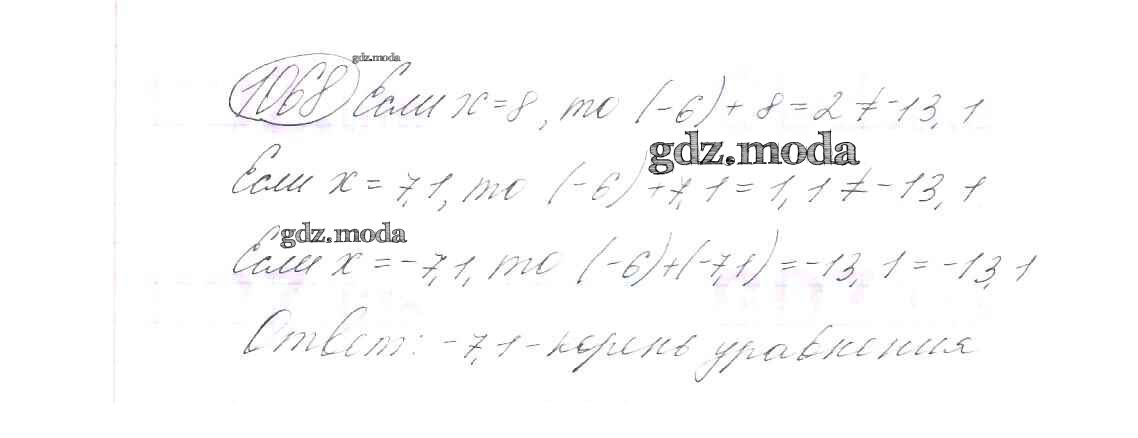 gdz.moda
1068 Если x=8, то (-6)+8=2≠-13,1
gdz.moda
Если x=7,1, то (-6)+7,1=1,1≠-13,1
gdz.moda
Если x=-7,1, то (-6)+(-7,1)=-13,1=-13,1
Ответ: -7,1-корень уравнения